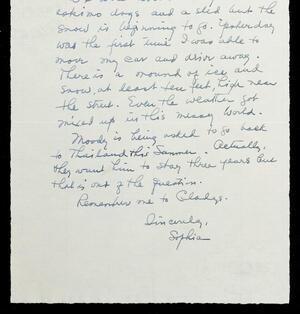 eskimo dogs and a sled but the
snow is beginning to go. Yesterday
was the first time I was able to
move my car and drive away.
There is a mound of ice and
snow, at least ten feet, high near
the street. Even the weather got
mixed up in this messy world.
Moody is being asked to go back
to Thailand this Summer. Actually,
they want him to stay three years but
that is out of the question.
Remember me to Gladys.
Sincerely,
Sophia